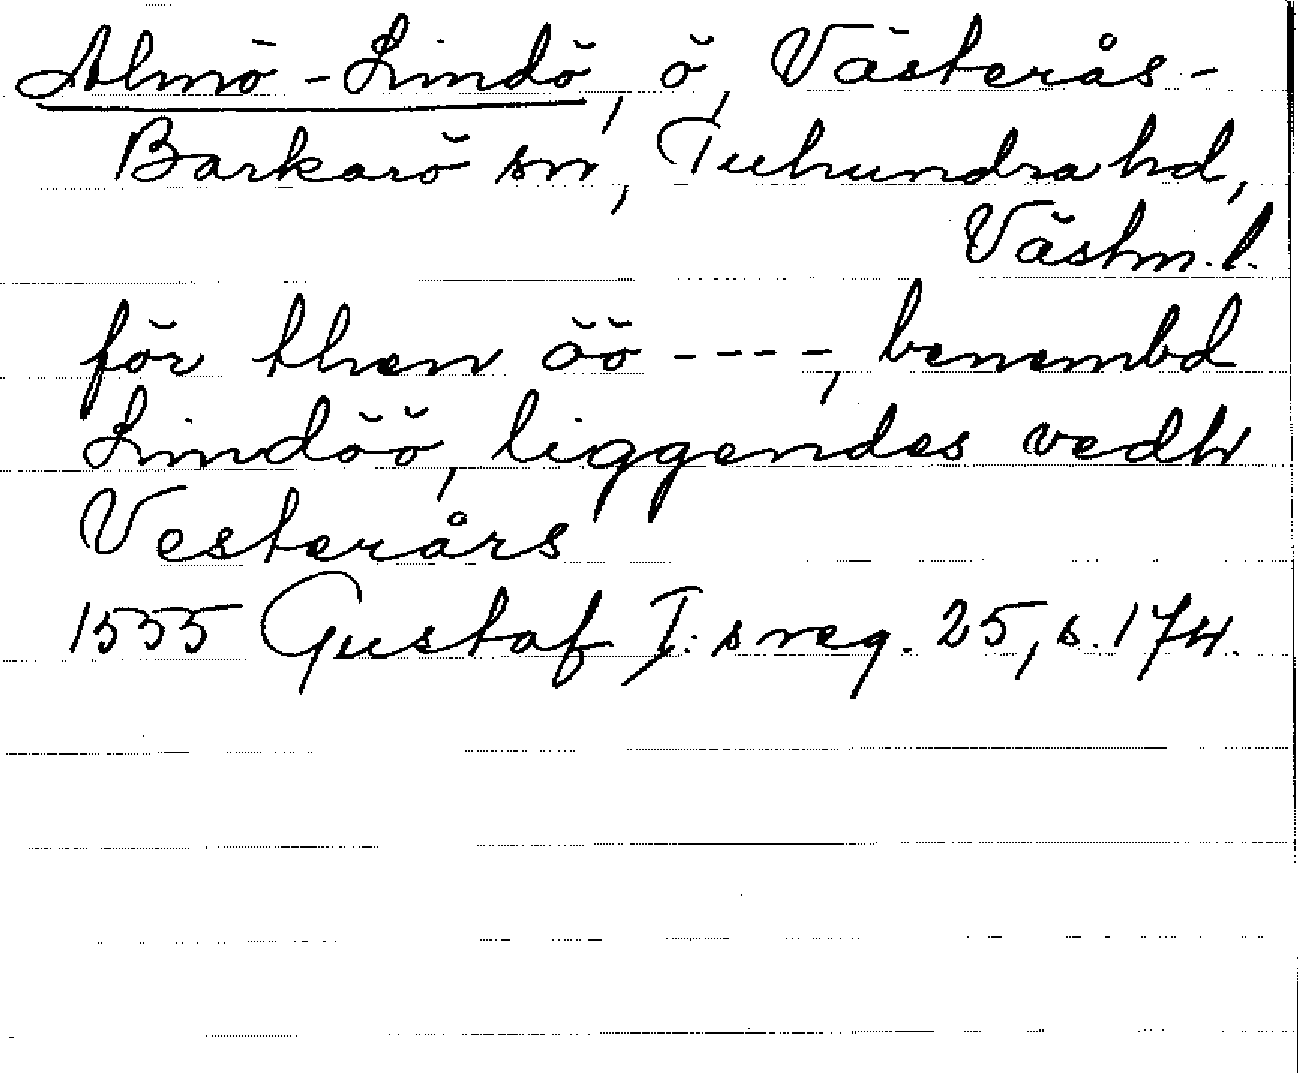 Almö-Lindö, ö, Västerås-
Barkarö sn, Tuhundra hd,
Västm. l.
för then öö ----, benembd
Lindöö, liggendes vedh
Vesterårs
1555 Gustaf I:s reg. 25, s. 174.